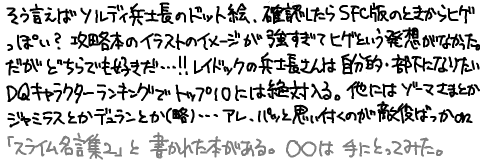 そう言えばソルディ兵士長のドット絵、確認したらSFC版のときからヒゲ
っぽい？攻略本のイラストのイメージが強すぎてヒゲという発想がなかった。
だがどちらでも好きだ…!!レイドックの兵士長さんは自分的・部下になりたい
DQキャラクターランキングでトップ10には絶対入る。他にはゾーマさまとか
ジャミラスとかデュランとか(略)…アレ、パッと思い付くのが敵役ばっかのわ
「スライム名言集2」と書かれた本がある。〇〇は手にとってみた。